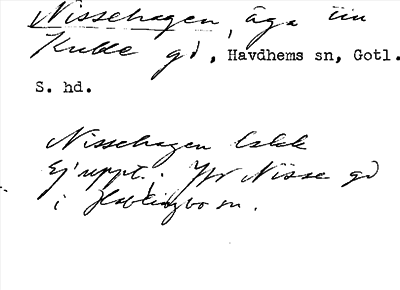 Nissehagen, äga till
Kulle gd, Havdhems sn, Gotl.
S. hd.
Nissehagen lekk
Ej uppt. Jfr Nisse gd
i Hablingbo sn.